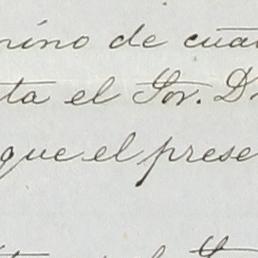 mino de cua
ta el Sor. D
que el prese